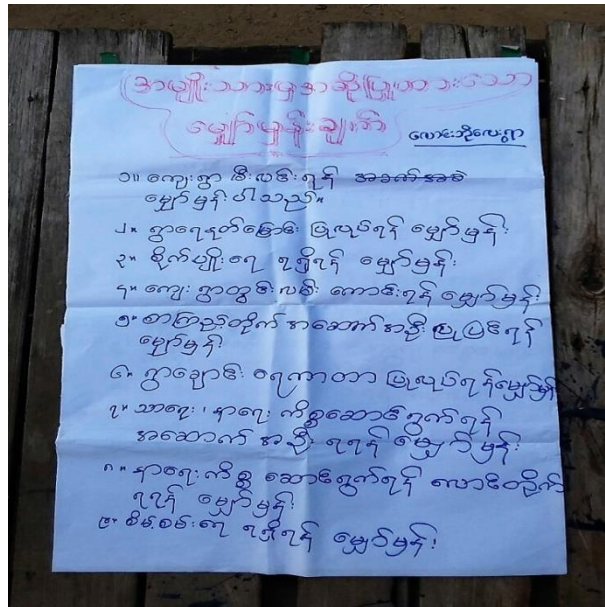 အမျိုးသားမှအဆိုပြုထားသော
မျှော်မှန်းချက်
လောင်းဘိုလေးရွာ
၁။ ကျေးရွာ မီးလင်းရန်
မျှော်မှန်းပါသည်။
၂။ ရွာရေနုတ်မြောင်း ပြုလုပ်ရန် မျှော်မှန်း
၃။ စိုက်ပျိုးရေ ရရှိရန် မျှော်မှန်း
၄။ ကျေးရွာတွင်းလမ်း ကောင်းရန် မျှော်မှန်း
၅။ စာကြည့်တိုက် အဆောက်အဦး ပြုပြင်ရန်
မျှော်မှန်း
၆။ ရွာချောင်း ရေကာတာ ပြုလုပ်ရန်မျှော်မှန်း
၇။ သာရေး၊ နာရေး ကိစ္စဆောင်ရွက်ရန်
အဆောက်အဦး ရရန် မျှော်မှန်း
၈။ နာရေးကိစ္စ ဆောင်ရွက်ရန် တိုက်
ရရန် မျှော်မှန်း
၉။ စိမ့်စမ်းရေ ရရှိရန် မျှော်မှန်း